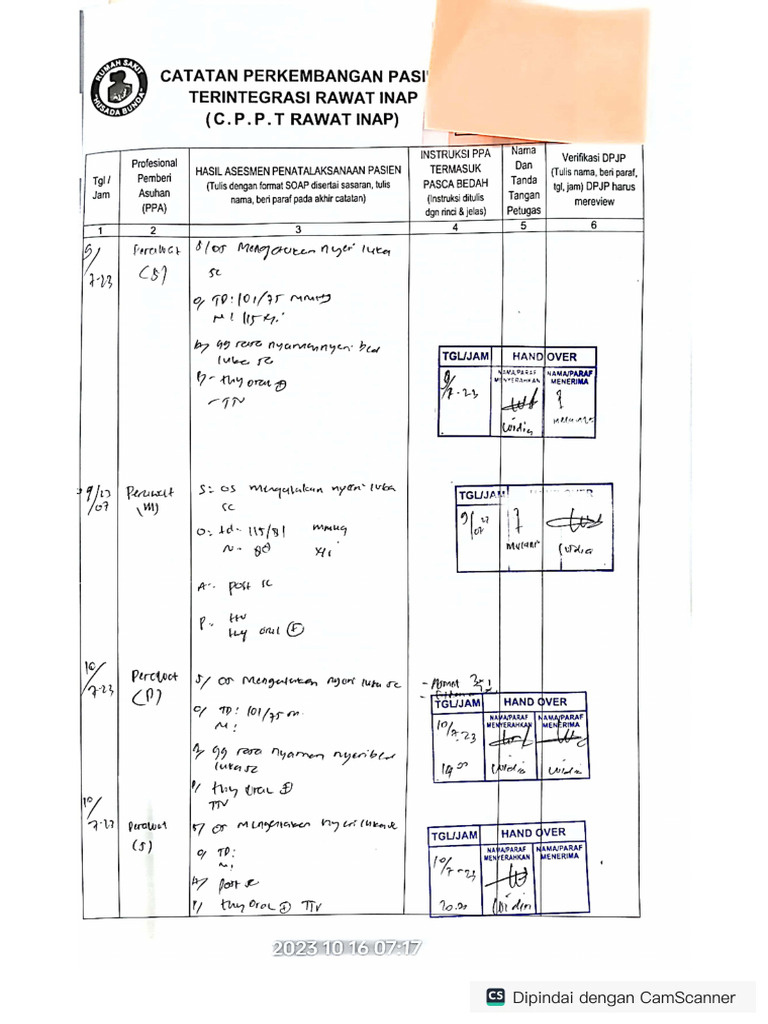 RUMAH SAKIT
HUSADA BUNDA
CATATAN PERKEMBANGAN PASI
TERINTEGRASI RAWAT INAP
(C.P.P.T RAWAT INAP)
Tgl / Jam
Profesional Pemberi Asuhan (PPA)
HASIL ASESMEN PENATALAKSANAAN PASIEN
(Tulis dengan format SOAP disertai sasaran, tulis nama, beri paraf pada akhir catatan)
INSTRUKSI PPA TERMASUK PASCA BEDAH
(Instruksi ditulis dgn rinci & jelas)
Nama Dan Tanda Tangan Petugas
Verifikasi DPJP
(Tulis nama, beri paraf, tgl, jam) DPJP harus mereview
1 2 3 4 5 6
9/7-23
Perawat (S)
S/ os mengatakan nyeri luka
sc
O/ TD: 101/75 mmHg
N: 115 x/i
A/ gg rasa nyaman nyeri bcd
luka sc
P/ - thy oral +
- TTV
TGL/JAM HAND OVER
NAMA/PARAF MENYERAHKAN NAMA/PARAF MENERIMA
9/7-23
widia
9/23
07
Perawat (M)
S: os mengatakan nyeri luka
sc
O: td: 115/81 mmHg
N: 80 x/i
A: post sc
P: ttv
thy oral +
TGL/JAM HAND OVER
9/
07
widia
10/7-23
Perawat (P)
S/ os mengatakan nyeri luka sc
O/ TD: 101/75 m
N:
A/ gg rasa nyaman nyeri bcd
luka sc
P/ thy oral +
TTV
TGL/JAM HAND OVER
NAMA/PARAF MENYERAHKAN NAMA/PARAF MENERIMA
10/7-23
14 00
widia widia
10/7-23
Perawat (S)
S/ os mengatakan nyeri luka sc
O/ TD:
N:
A/ post sc
P/ thy oral + TTV
TGL/JAM HAND OVER
NAMA/PARAF MENYERAHKAN NAMA/PARAF MENERIMA
10/7-23
20.00
widia
2023 10 16 07:17
CS Dipindai dengan CamScanner